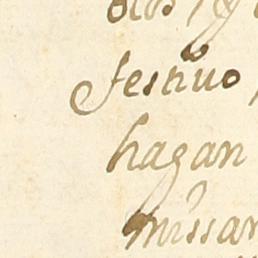 festiuo
hagan
missar